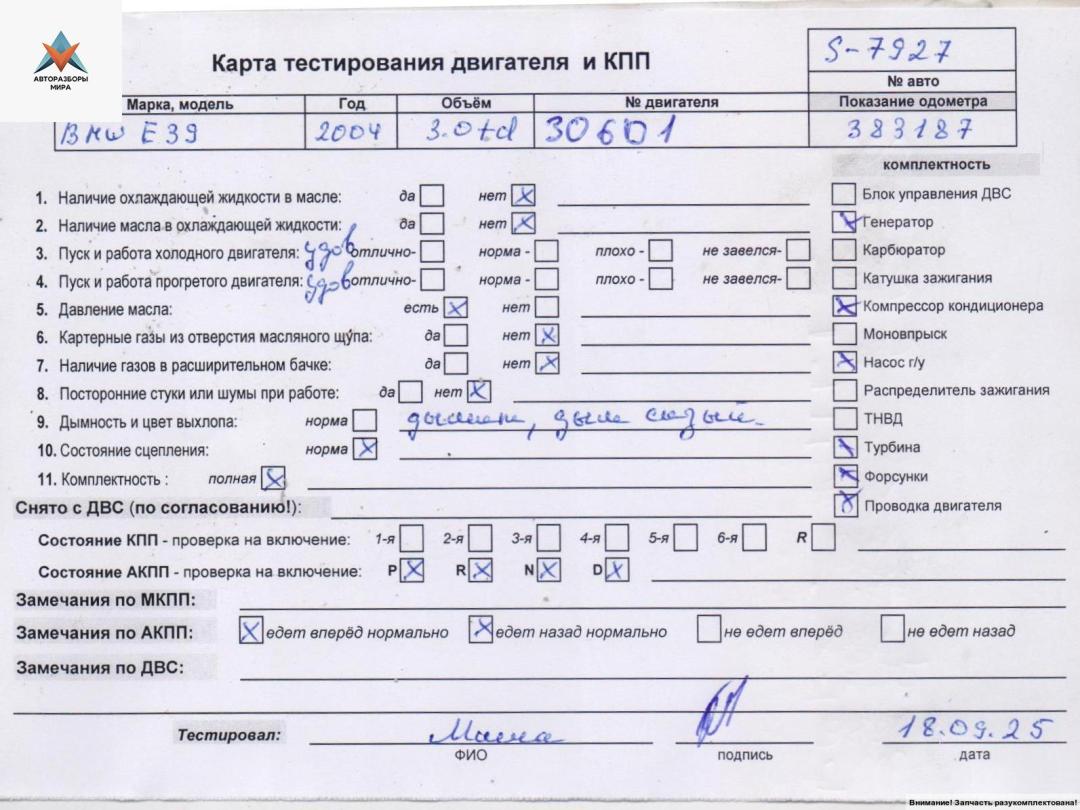 АВТОРАЗБОРЫ
МИРА
Карта тестирования двигателя и КПП
S-7927
№ авто
Марка, модель Год Объём № двигателя Показание одометра
BMW E39 2004 3.0td 306D1 383187
комплектность
1. Наличие охлаждающей жидкости в масле: да нет x
2. Наличие масла в охлаждающей жидкости: да нет x
3. Пуск и работа холодного двигателя: удов отлично- норма - плохо - не завелся-
4. Пуск и работа прогретого двигателя: удов отлично- норма - плохо - не завелся-
5. Давление масла: есть x нет
6. Картерные газы из отверстия масляного щупа: да нет x
7. Наличие газов в расширительном бачке: да нет x
8. Посторонние стуки или шумы при работе: да нет x
9. Дымность и цвет выхлопа: норма дымит, дым сизый.
10. Состояние сцепления: норма x
11. Комплектность : полная x
Блок управления ДВС
x Генератор
Карбюратор
Катушка зажигания
x Компрессор кондиционера
Моновпрыск
x Насос г/у
Распределитель зажигания
ТНВД
x Турбина
x Форсунки
x Проводка двигателя
Снято с ДВС (по согласованию!):
Состояние КПП - проверка на включение: 1-я 2-я 3-я 4-я 5-я 6-я R
Состояние АКПП - проверка на включение: P x R x N x D x
Замечания по МКПП:
Замечания по АКПП: x едет вперёд нормально x едет назад нормально не едет вперёд не едет назад
Замечания по ДВС:
Тестировал: 18.09.25
ФИО подпись дата
Внимание! Запчасть разукомплектована!